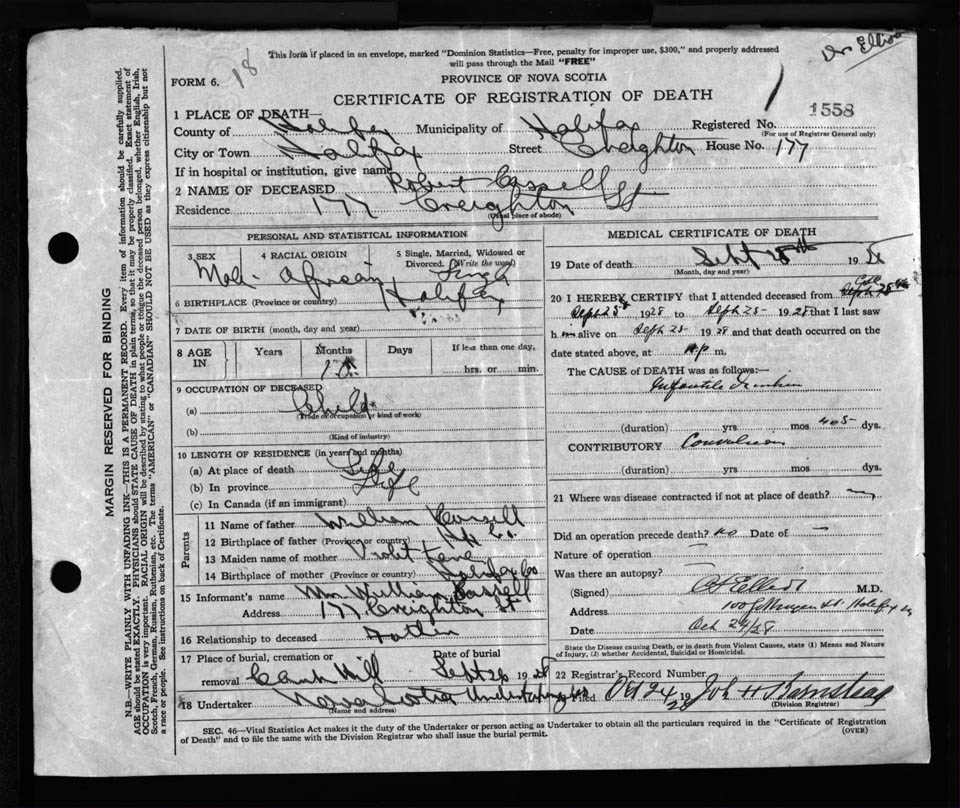 Dr Elliott
18
This form if placed in an envelope, marked "Dominion Statistics—Free, penalty for improper use, $300," and properly addressed
will pass through the Mail "FREE"
FORM 6.
PROVINCE OF NOVA SCOTIA
CERTIFICATE OF REGISTRATION OF DEATH
1558
1 PLACE OF DEATH—
County of Halifax Municipality of Halifax Registered No.
(For use of Registrar General only)
City or Town Halifax Street Creighton House No. 177
If in hospital or institution, give name
2 NAME OF DECEASED Robert Cassell
Residence 177 Creighton St
(Usual place of abode)
PERSONAL AND STATISTICAL INFORMATION
3 SEX Male
4 RACIAL ORIGIN African
5 Single, Married, Widowed or Divorced. (Write the word) Single
6 BIRTHPLACE (Province or country) Halifax
7 DATE OF BIRTH (month, day and year)
8 AGE IN Years Months Days If less than one day,
10 hrs. or min.
9 OCCUPATION OF DECEASED
(a) Child
(Trade or occupation or kind of work)
(b)
(Kind of industry)
10 LENGTH OF RESIDENCE (in years and months)
(a) At place of death Life
(b) In province Life
(c) In Canada (if an immigrant)
Parents
11 Name of father William Cassell
12 Birthplace of father (Province or country)
13 Maiden name of mother Violet
14 Birthplace of mother (Province or country) Halifax Co
15 Informant's name William Cassell
Address 177 Creighton St
16 Relationship to deceased Father
17 Place of burial, cremation or removal Camp Hill Date of burial Sept 26 1928
18 Undertaker Nova Scotia Undertaking Co
(Name and address)
MEDICAL CERTIFICATE OF DEATH
19 Date of death Sept 25th 1928
(Month, day and year)
20 I HEREBY CERTIFY that I attended deceased from
Sept 25 1928 to Sept 25 1928 that I last saw
h im alive on Sept 25 1928 and that death occurred on the
date stated above, at p m.
The CAUSE of DEATH was as follows:—
Infantile
(duration) yrs mos dys.
CONTRIBUTORY Convulsions
(duration) yrs mos dys.
21 Where was disease contracted if not at place of death?
Did an operation precede death? no Date of —
Nature of operation —
Was there an autopsy? —
(Signed) Elliott M.D.
Address Halifax
Date Oct 24/28
State the Disease causing Death, or in death from Violent Causes, state (1) Means and Nature
of Injury, (2) whether Accidental, Suicidal or Homicidal.
22 Registrar's Record Number
Filed Oct 24 1928 John H Barnstead
(Division Registrar)
SEC. 46—Vital Statistics Act makes it the duty of the Undertaker or person acting as Undertaker to obtain all the particulars required in the "Certificate of Registration
of Death" and to file the same with the Division Registrar who shall issue the burial permit.
(OVER)
MARGIN RESERVED FOR BINDING
N.B.—WRITE PLAINLY WITH UNFADING INK—THIS IS A PERMANENT RECORD. Every item of information should be carefully supplied.
AGE should be stated EXACTLY. PHYSICIANS should STATE CAUSE OF DEATH in plain terms, so that it may be properly classified. Exact statement of
OCCUPATION is very important. RACIAL ORIGIN will be described by stating to what people or tongue the deceased person belonged, whether English, Irish,
Scotch, French, German, Russian, Ruthenian, etc. The terms "AMERICAN" or "CANADIAN" SHOULD NOT BE USED as they express citizenship but not
a race or people. See instructions on back of Certificate.